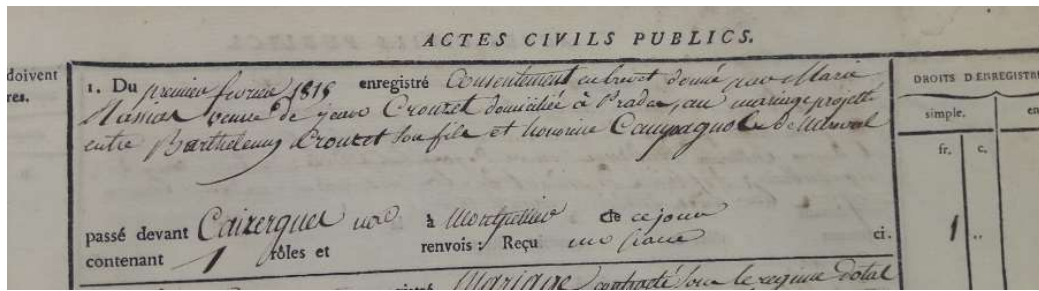 ACTES CIVILS PUBLICS.
doivent
res.
1. Du premier fevrier 1815 enregistré Consentement en brevet donné par Marie
Massiae veuve de jean Crouzet domiciliée à Prades, au mariage projetté
entre Barthelemy Crouzet son fils et honorine Campagnole de
DROITS D'ENREGISTRE
simple. en
fr. c.
passé devant Cairergues nre à Montpellier de ce jour
contenant 1 rôles et renvois : Reçu un franc ci. 1 ..
Mariage contracté sous le regime dotal